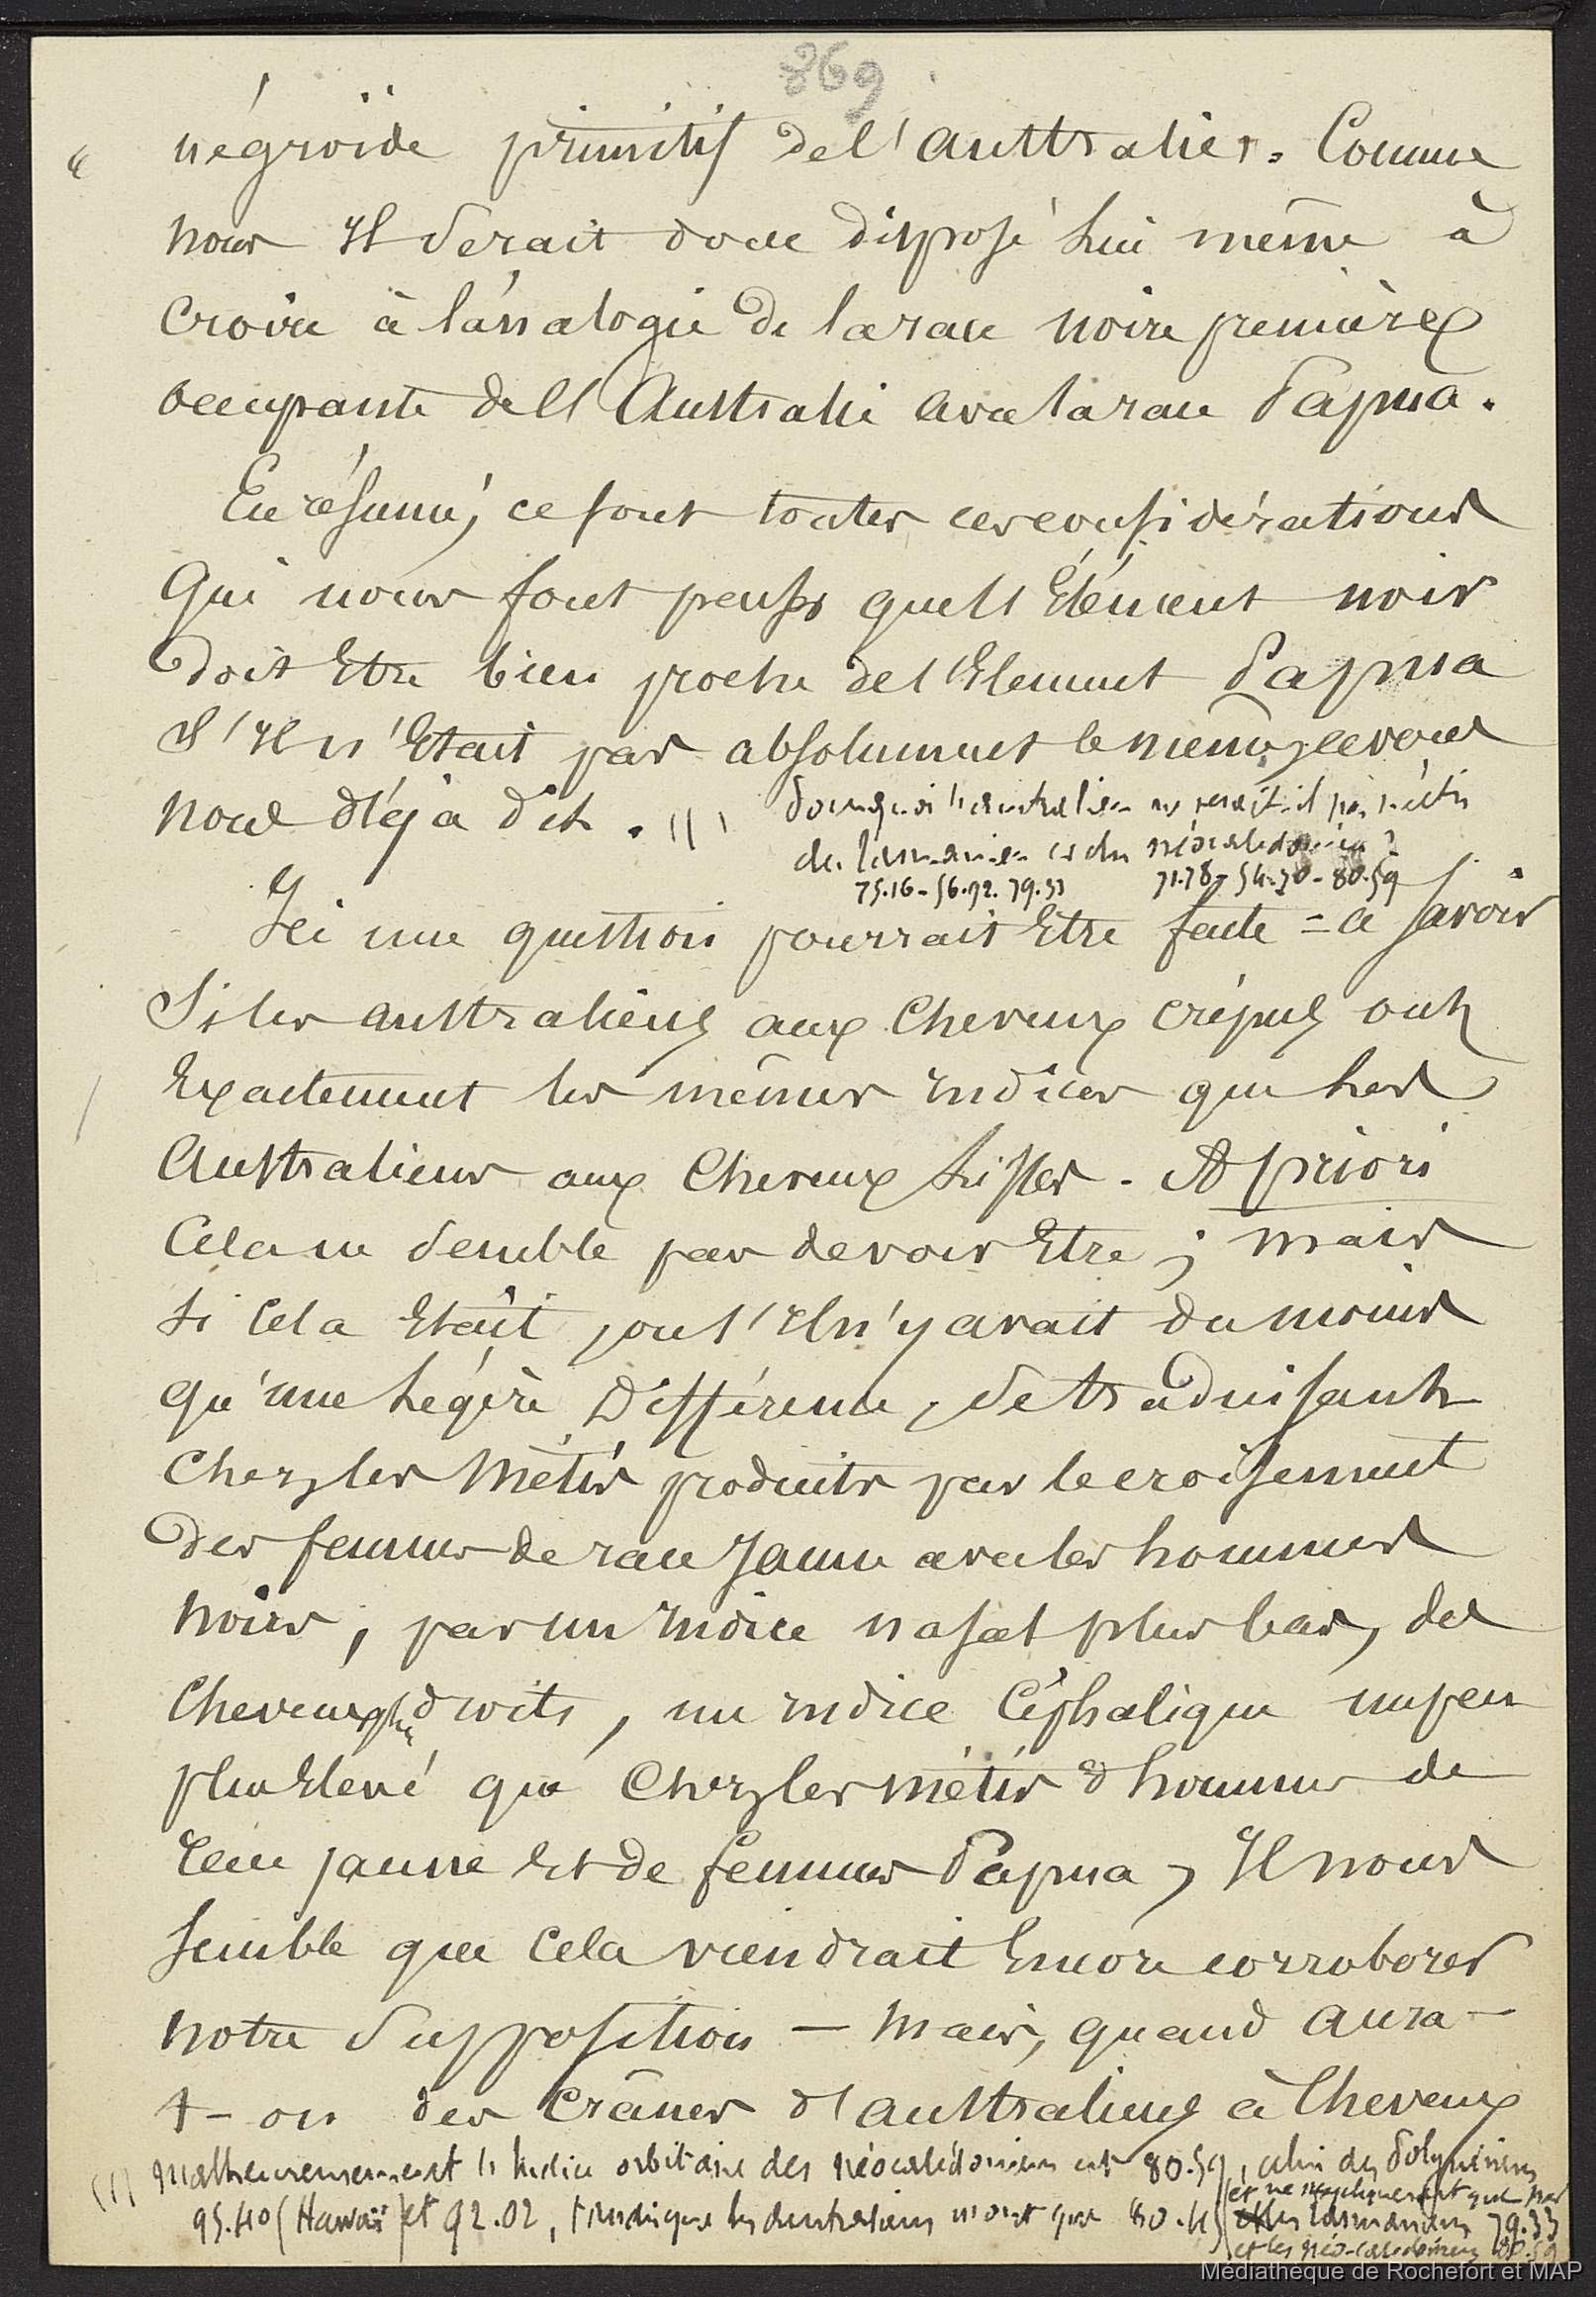 869
« négroïde primitif de l'australie ». Comme
nous Il Serait donc disposé lui même à
croire à l'analogie de la race noire première
occupante de l'Australie avec la race Papua.
En résumé, ce sont toutes ces considérations
Qui nous font penser que l'Elément noir
doit Etre bien proche de l'Element Papua
S'Il n'Etait pas absolument le même, avons
nous déjà dit. (1) Pourquoi l'australien ne serait-il pas métis
de tasmanien et du néocalédonien ?
75.16 - 56.92. 79.33 71.78 - 54.70 - 80.59
Ici une question pourrait Etre faite = a savoir
Si les australiens aux Cheveux crépus ont
Exactement les mêmes Indices que les
Australiens aux Cheveux lisses. A priori
Cela ne Semble pas devoir Etre ; mais
si Cela Etait, ou s'Il n'y avait du moins
qu'une légère Différence, Se traduisant
Chez les Métis produits par le croisement
des femmes de race Jaune avec les hommes
noirs, par un Indice nasal plus bas, des
Cheveux plus droits, un Indice Céphalique un peu
plus Elevé que Chez les métis d'hommes de
race jaune Et de femmes Papua, Il nous
semble que Cela viendrait Encore corroborer
notre Supposition — Mais, quand aura-
t-on des Crânes d'australiens à Cheveux
(1) Malheureusement l'Indice orbitaire des néocalédoniens est 80.59, celui des Polynésiens
95.40 (Hawaï) et 92.02, tandis que les australiens n'ont que 80.4
et ne s'expliquerait que par
les tasmaniens 79.33
et les néo-calédoniens 80.59
Médiathèque de Rochefort et MAP